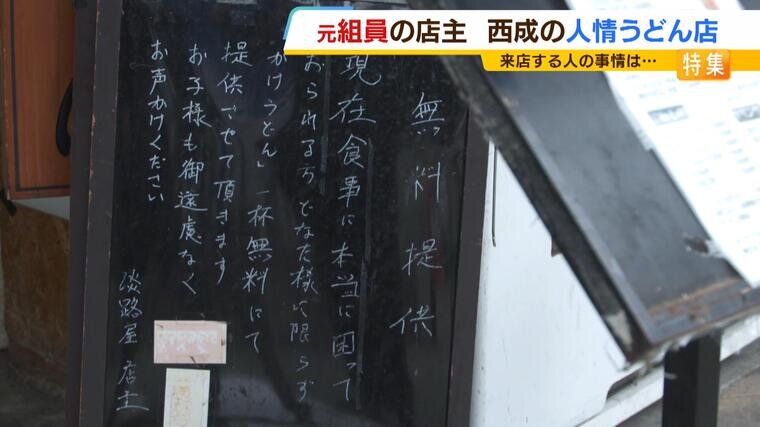 元組員の店主 西成の人情うどん店
来店する人の事情は…
特集
無料提供
現在食事に本当に困って
おられる方どなた様に限らず
かけうどん」一杯無料にて
提供させて頂きます
お子様も御遠慮なく
お声かけください
淡路屋 店主